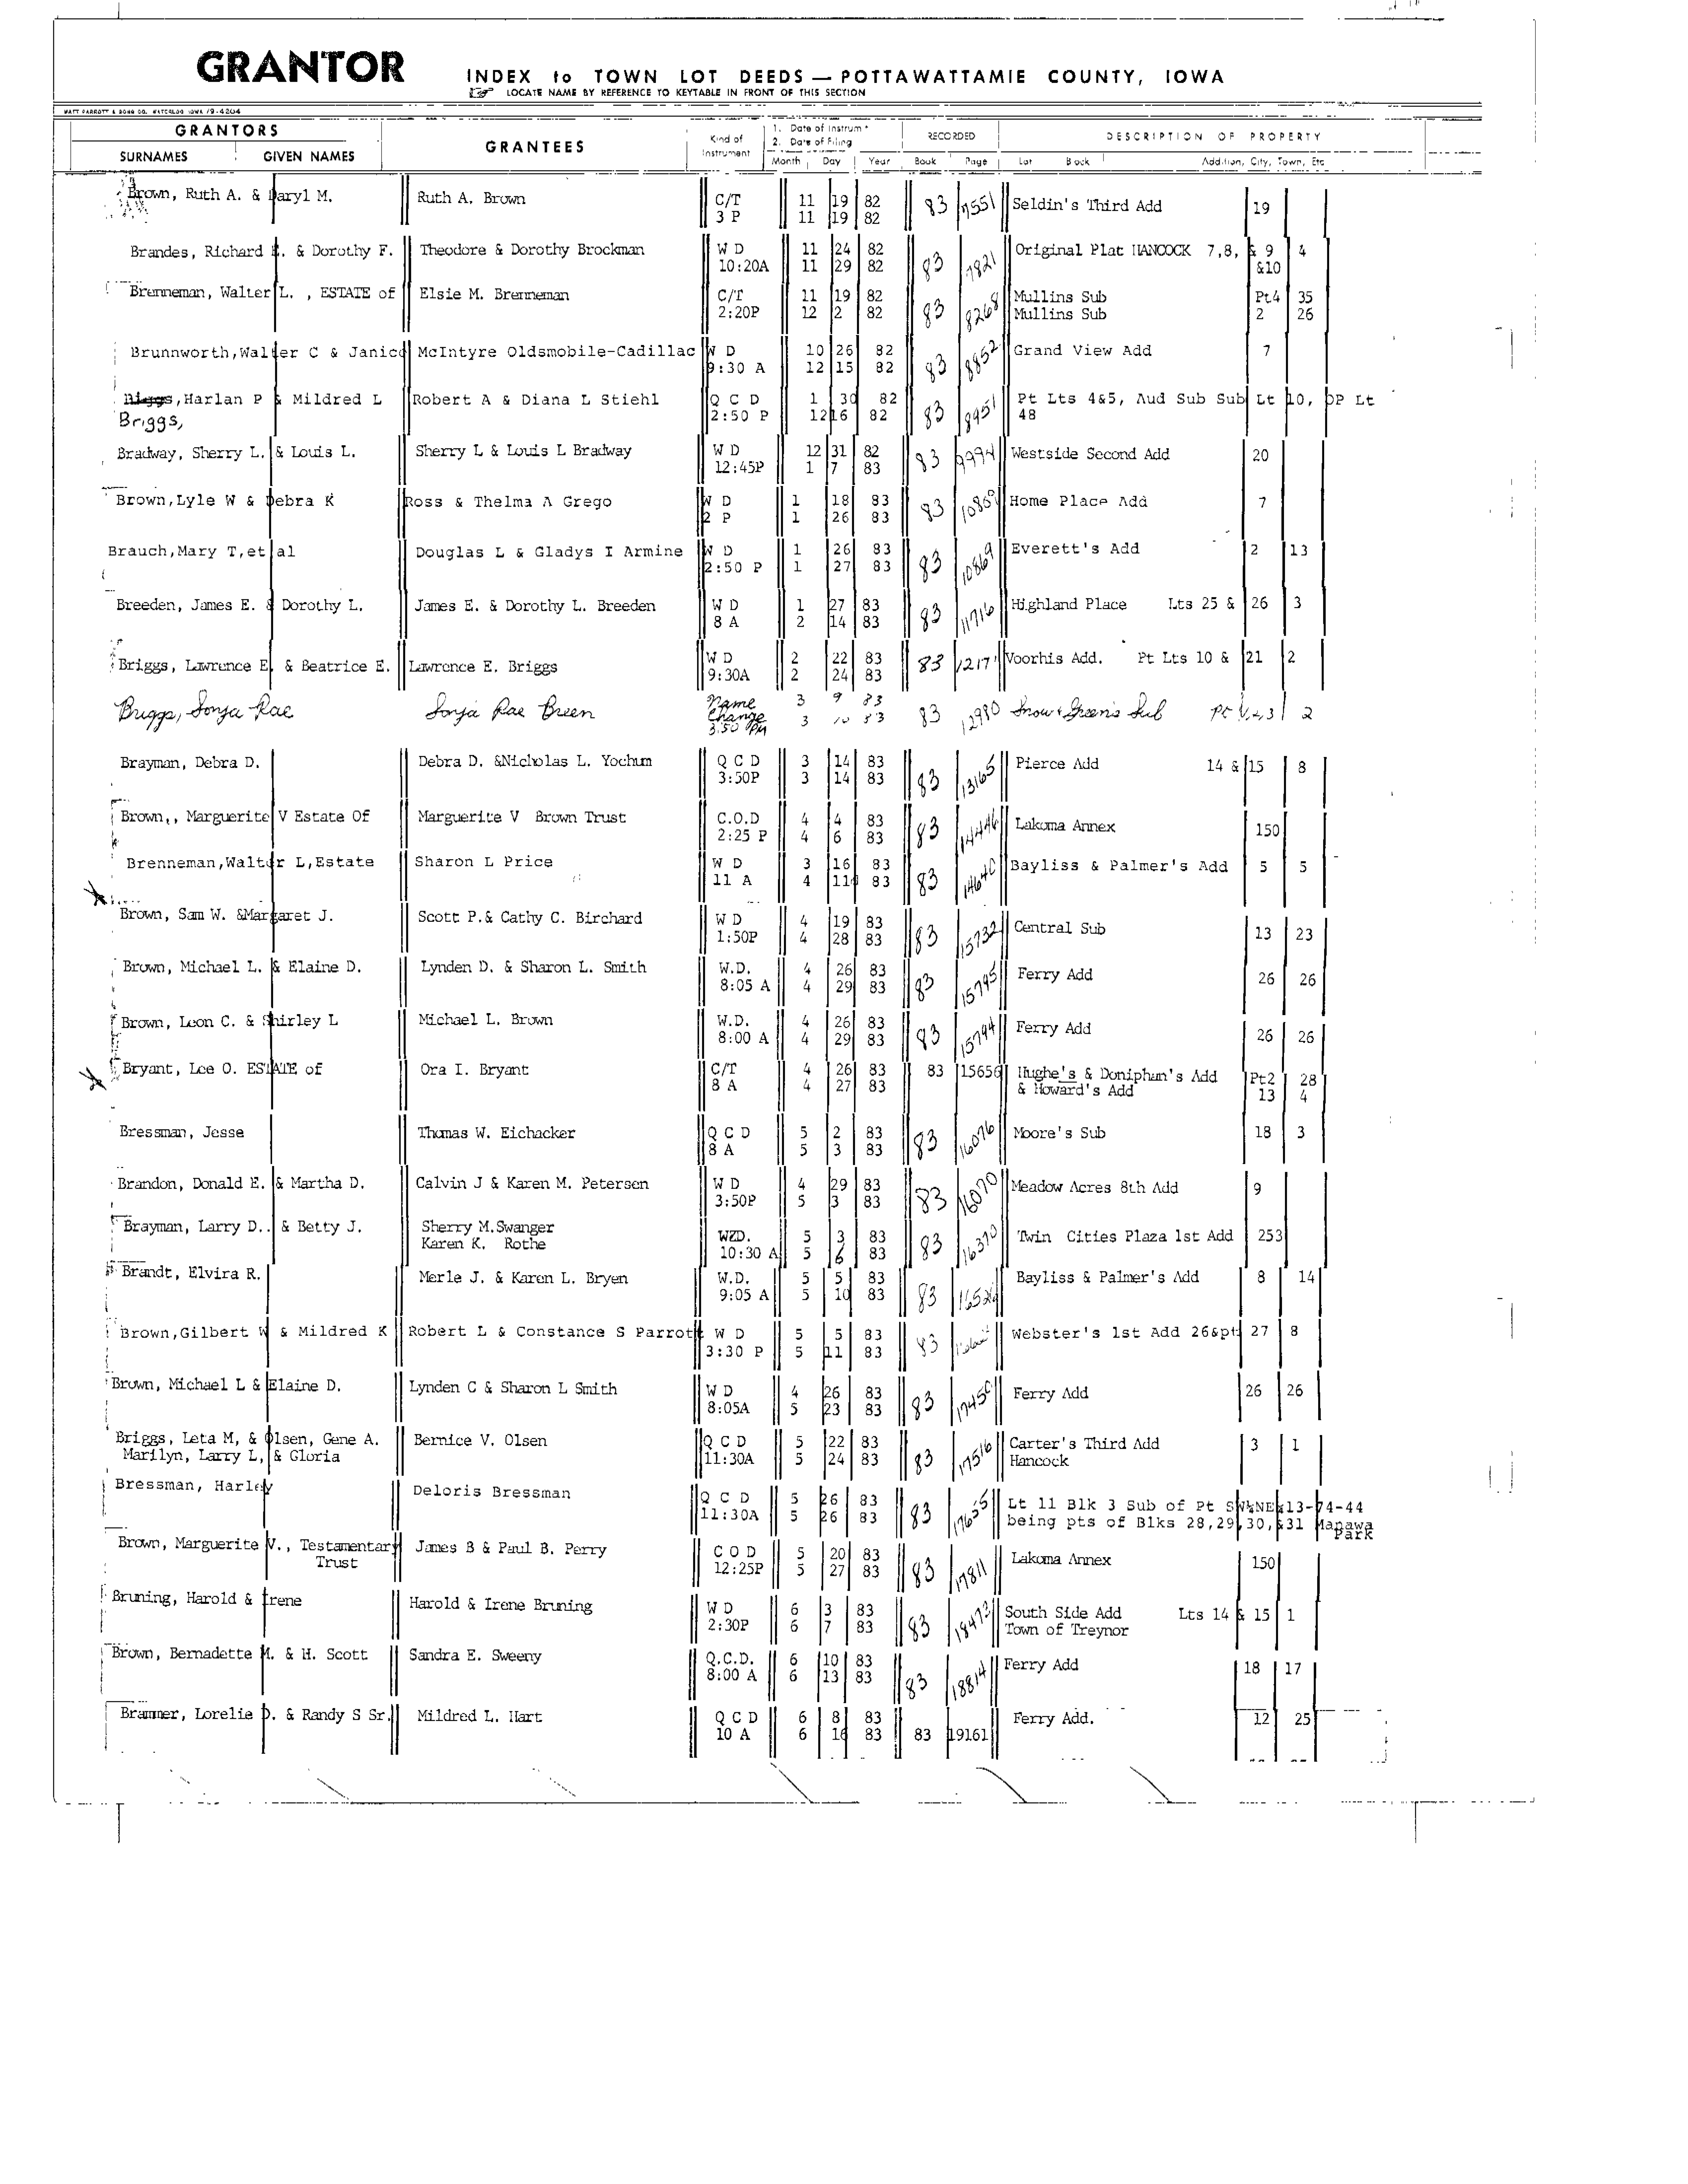 GRANTOR INDEX to TOWN LOT DEEDS — POTTAWATTAMIE COUNTY, IOWA
LOCATE NAME BY REFERENCE TO KEYTABLE IN FRONT OF THIS SECTION
MATT PARROTT & SONS CO. WATERLOO IOWA
GRANTORS GRANTEES Kind of Instrument 1. Date of Instrum 2. Date of Filing RECORDED DESCRIPTION OF PROPERTY
SURNAMES GIVEN NAMES Month Day Year Book Page Lot Block Addition, City, Town, Etc
Brown, Ruth A. & Daryl M. Ruth A. Brown C/T 11 19 82 83 7551 Seldin's Third Add 19
3 P 11 19 82
Brandes, Richard E. & Dorothy F. Theodore & Dorothy Brockman W D 11 24 82 83 7821 Original Plat HANCOCK 7,8, & 9 4
10:20A 11 29 82 &10
Brenneman, Walter L. , ESTATE of Elsie M. Brenneman C/T 11 19 82 83 8268 Mullins Sub Pt4 35
2:20P 12 2 82 Mullins Sub 2 26
Brunnworth,Walter C & Janice McIntyre Oldsmobile-Cadillac W D 10 26 82 83 8852 Grand View Add 7
9:30 A 12 15 82
Harlan P & Mildred L Robert A & Diana L Stiehl Q C D 1 30 82 83 8951 Pt Lts 4&5, Aud Sub Sub Lt 10, OP Lt
Briggs, 2:50 P 12 16 82 48
Bradway, Sherry L. & Louis L. Sherry L & Louis L Bradway W D 12 31 82 83 9994 Westside Second Add 20
12:45P 1 7 83
Brown,Lyle W & Debra K Ross & Thelma A Grego W D 1 18 83 83 Home Place Add 7
2 P 1 26 83
Brauch,Mary T,et al Douglas L & Gladys I Armine W D 1 26 83 83 10869 Everett's Add 2 13
2:50 P 1 27 83
Breeden, James E. & Dorothy L. James E. & Dorothy L. Breeden W D 1 27 83 83 11716 Highland Place Lts 25 & 26 3
8 A 2 14 83
Briggs, Lawrence E. & Beatrice E. Lawrence E. Briggs W D 2 22 83 83 1217 Voorhis Add. Pt Lts 10 & 21 2
9:30A 2 24 83
Briggs, Sonja Rae Sonja Rae Breen Name 3 9 83 83 12980 Snow & Green's Sub Pt 1,2,3 2
Change 3 10 83
3:50 PM
Brayman, Debra D. Debra D. &Nicholas L. Yochum Q C D 3 14 83 83 13165 Pierce Add 14 & 15 8
3:50P 3 14 83
Brown,, Marguerite V Estate Of Marguerite V Brown Trust C.O.D 4 4 83 83 14446 Lakoma Annex 150
2:25 P 4 6 83
Brenneman,Walter L,Estate Sharon L Price W D 3 16 83 83 14640 Bayliss & Palmer's Add 5 5
11 A 4 11 83
Brown, Sam W. &Margaret J. Scott P.& Cathy C. Birchard W D 4 19 83 83 15732 Central Sub 13 23
1:50P 4 28 83
Brown, Michael L. & Elaine D. Lynden D. & Sharon L. Smith W.D. 4 26 83 83 15795 Ferry Add 26 26
8:05 A 4 29 83
Brown, Leon C. & Shirley L Michael L. Brown W.D. 4 26 83 83 15794 Ferry Add 26 26
8:00 A 4 29 83
Bryant, Lee O. ESTATE of Ora I. Bryant C/T 4 26 83 83 15656 Hughe's & Doniphan's Add Pt2 28
8 A 4 27 83 & Howard's Add 13 4
Bressman, Jesse Thomas W. Eichacker Q C D 5 2 83 83 16076 Moore's Sub 18 3
8 A 5 3 83
Brandon, Donald E. & Martha D. Calvin J & Karen M. Petersen W D 4 29 83 83 16070 Meadow Acres 8th Add 9
3:50P 5 3 83
Brayman, Larry D.. & Betty J. Sherry M.Swanger WZD. 5 3 83 83 16370 Twin Cities Plaza 1st Add 253
Karen K. Rothe 10:30 A 5 6 83
Brandt, Elvira R. Merle J. & Karen L. Bryen W.D. 5 5 83 83 Bayliss & Palmer's Add 8 14
9:05 A 5 10 83
Brown,Gilbert W & Mildred K Robert L & Constance S Parrott W D 5 5 83 83 Webster's 1st Add 26&pt 27 8
3:30 P 5 11 83
Brown, Michael L & Elaine D. Lynden C & Sharon L Smith W D 4 26 83 83 17450 Ferry Add 26 26
8:05A 5 23 83
Briggs, Leta M, & Olsen, Gene A. Bernice V. Olsen Q C D 5 22 83 83 17516 Carter's Third Add 3 1
Marilyn, Larry L, & Gloria 11:30A 5 24 83 Hancock
Bressman, Harley Deloris Bressman Q C D 5 26 83 83 17655 Lt 11 Blk 3 Sub of Pt SW¼NE¼13-74-44
11:30A 5 26 83 being pts of Blks 28,29,30,&31 Manawa Park
Brown, Marguerite V., Testamentary James B & Paul B. Perry C O D 5 20 83 83 17811 Lakoma Annex 150
Trust 12:25P 5 27 83
Bruning, Harold & Irene Harold & Irene Bruning W D 6 3 83 83 18473 South Side Add Lts 14 & 15 1
2:30P 6 7 83 Town of Treynor
Brown, Bernadette M. & H. Scott Sandra E. Sweeny Q.C.D. 6 10 83 83 18814 Ferry Add 18 17
8:00 A 6 13 83
Brammer, Lorelie D. & Randy S Sr. Mildred L. Hart Q C D 6 8 83 83 19161 Ferry Add. 12 25
10 A 6 16 83